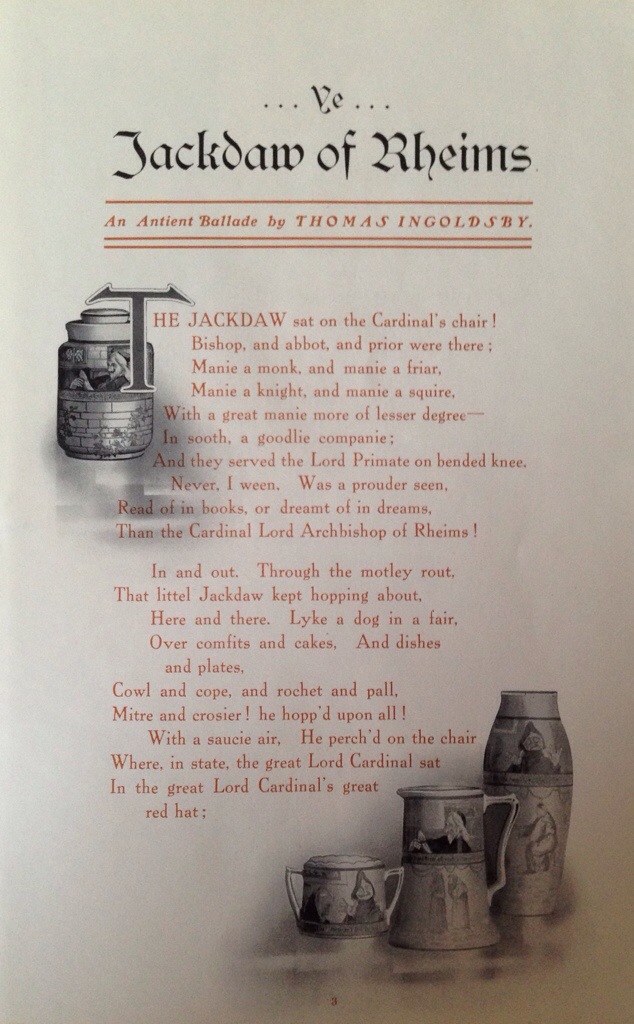 ... Ye ...
Jackdaw of Rheims
An Antient Ballade by THOMAS INGOLDSBY.
THE JACKDAW sat on the Cardinal's chair!
Bishop, and abbot, and prior were there;
Manie a monk, and manie a friar,
Manie a knight, and manie a squire,
With a great manie more of lesser degree—
In sooth, a goodlie companie;
And they served the Lord Primate on bended knee.
Never, I ween, Was a prouder seen,
Read of in books, or dreamt of in dreams,
Than the Cardinal Lord Archbishop of Rheims!
In and out. Through the motley rout,
That littel Jackdaw kept hopping about,
Here and there. Lyke a dog in a fair,
Over comfits and cakes, And dishes
and plates,
Cowl and cope, and rochet and pall,
Mitre and crosier! he hopp'd upon all!
With a saucie air, He perch'd on the chair
Where, in state, the great Lord Cardinal sat
In the great Lord Cardinal's great
red hat;
3